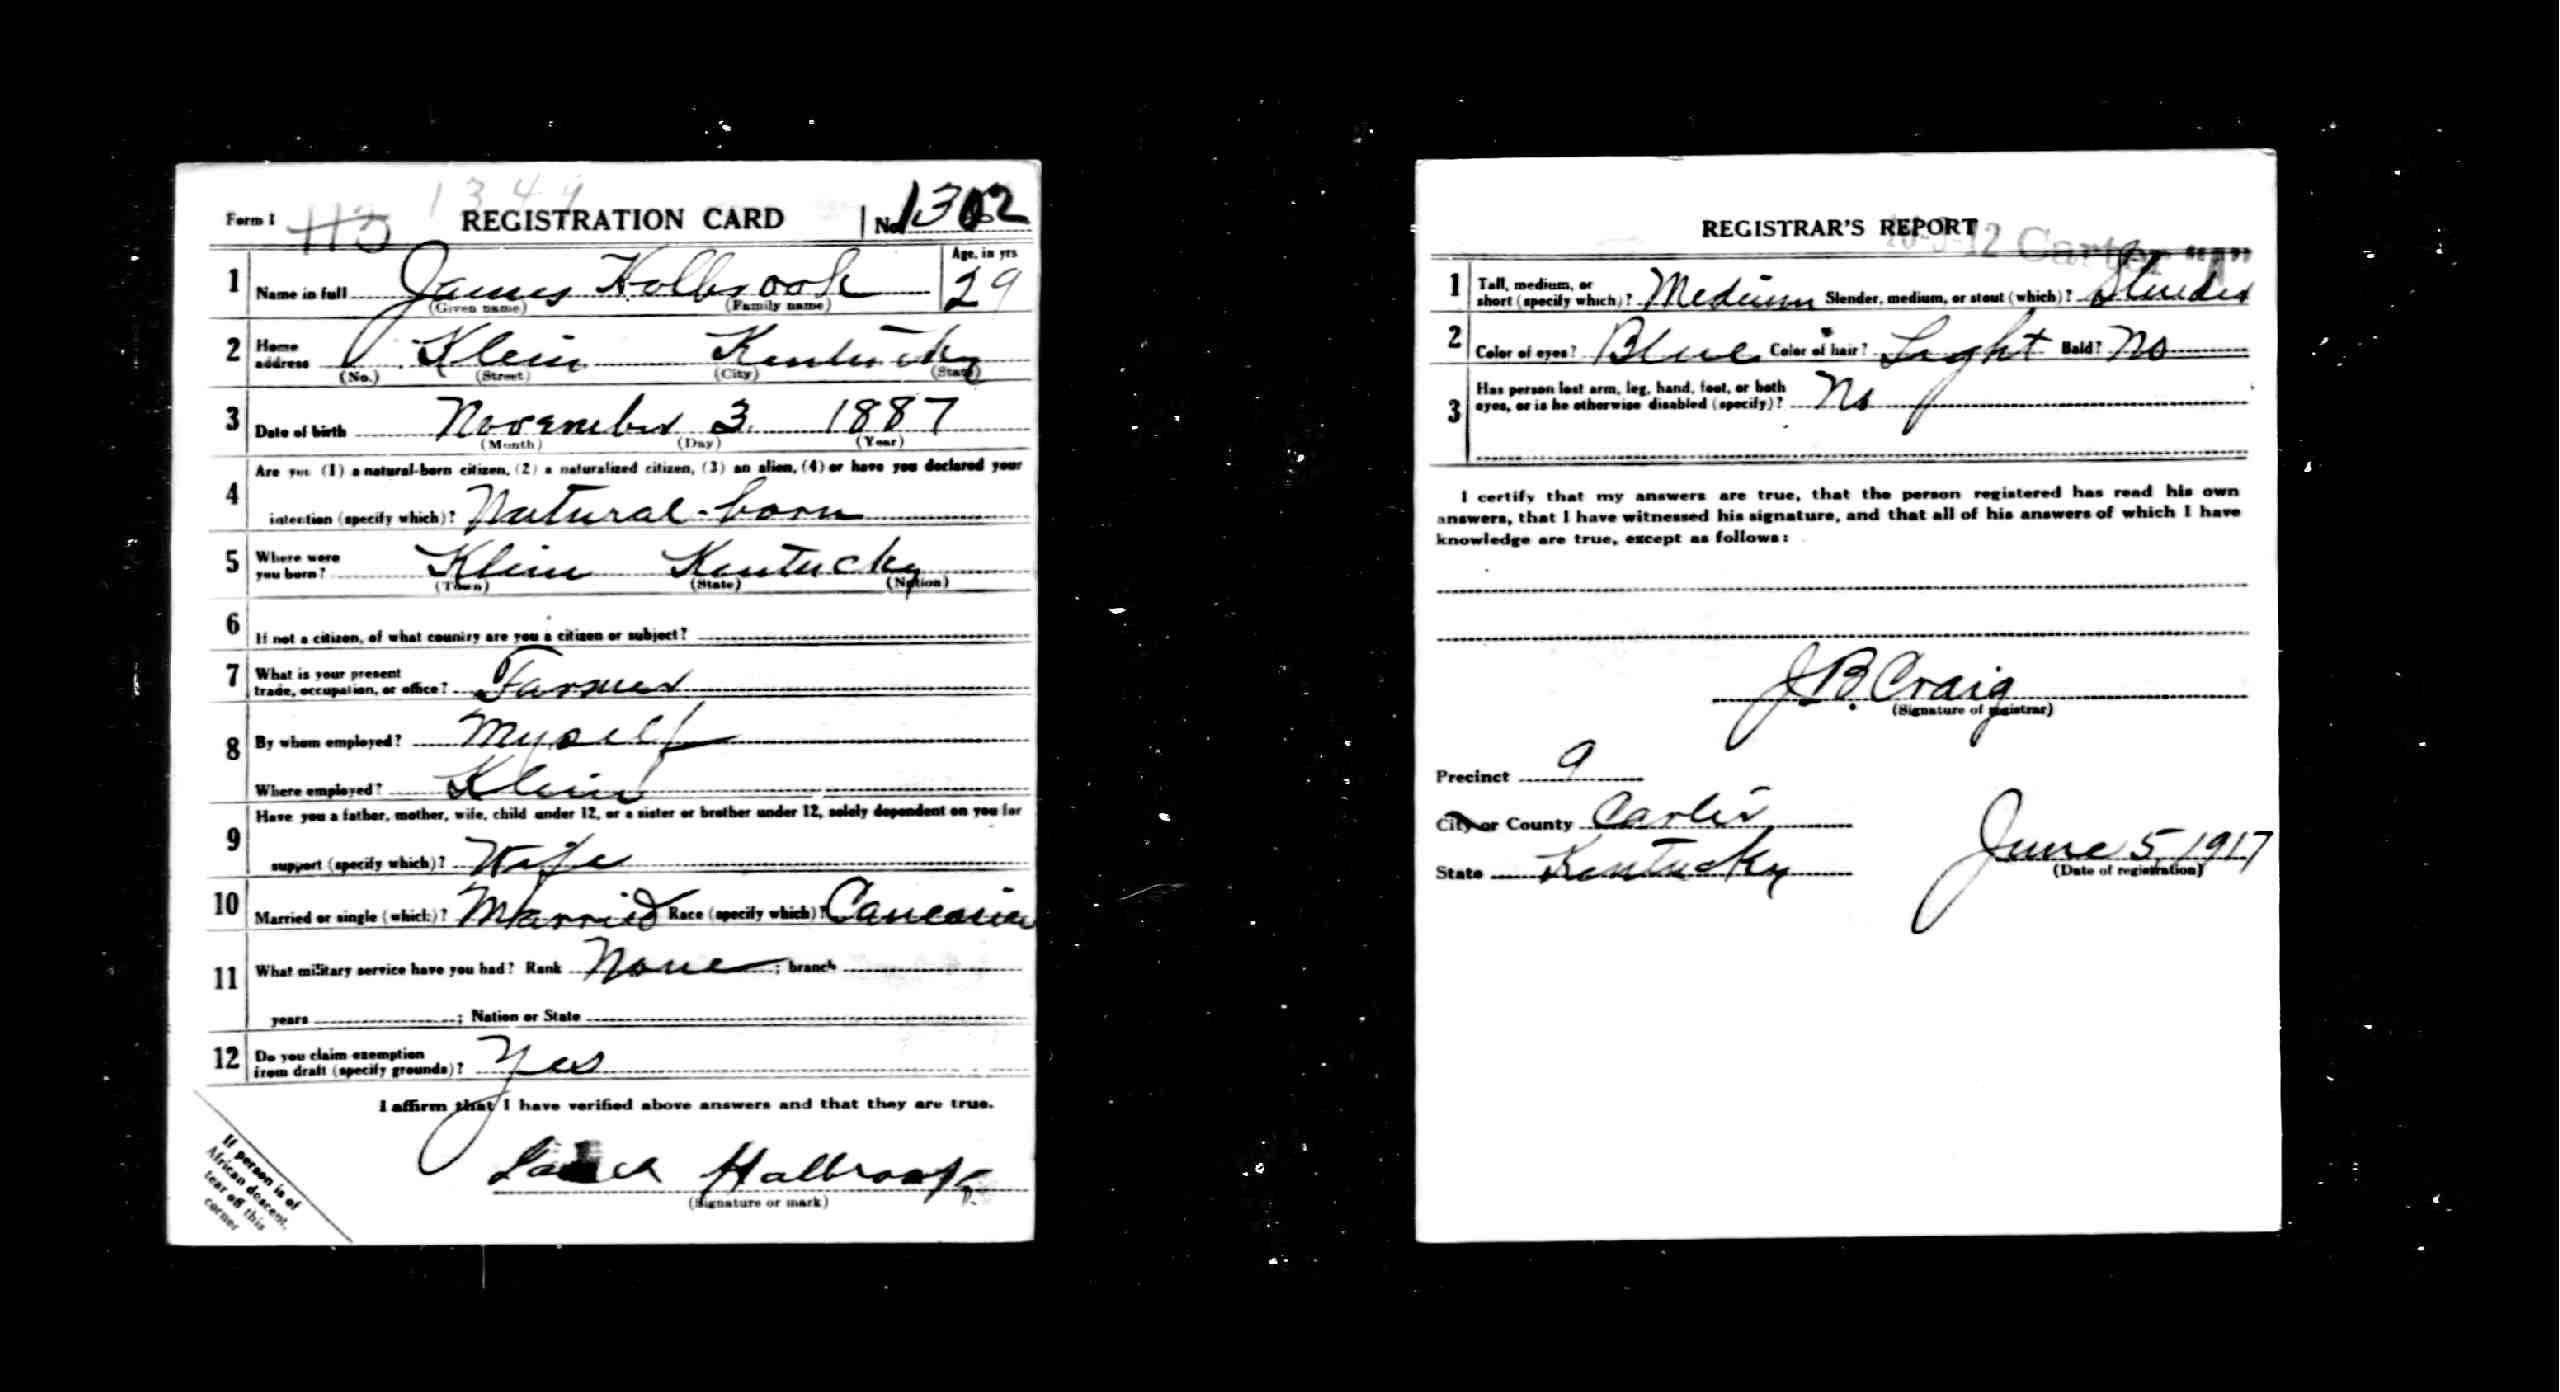 Form 1 113 1344 REGISTRATION CARD No. 1302
1 Name in full James Holbrook Age, in yrs. 29
(Given name) (Family name)
2 Home address Klein Kentucky
(No.) (Street) (City) (State)
3 Date of birth November 3 1887
(Month) (Day) (Year)
4 Are you (1) a natural-born citizen, (2) a naturalized citizen, (3) an alien, (4) or have you declared your
intention (specify which)? Natural-born
5 Where were you born? Klein Kentucky
(Town) (State) (Nation)
6 If not a citizen, of what country are you a citizen or subject?
7 What is your present
trade, occupation, or office? Farmer
8 By whom employed? Myself
Where employed? Klein
9 Have you a father, mother, wife, child under 12, or a sister or brother under 12, solely dependent on you for
support (specify which)? Wife
10 Married or single (which)? Married Race (specify which)? Caucasian
11 What military service have you had? Rank None; branch
years ; Nation or State
12 Do you claim exemption
from draft (specify grounds)? Yes
I affirm that I have verified above answers and that they are true.
Holbrook
(Signature or mark)
If person is of
African descent,
tear off this
corner
REGISTRAR'S REPORT
Carter
1 Tall, medium, or
short (specify which)? Medium Slender, medium, or stout (which)? Slender
2 Color of eyes? Blue Color of hair? Light Bald? No
3 Has person lost arm, leg, hand, foot, or both
eyes, or is he otherwise disabled (specify)? No
I certify that my answers are true, that the person registered has read his own
answers, that I have witnessed his signature, and that all of his answers of which I have
knowledge are true, except as follows:
J.B. Craig
(Signature of registrar)
Precinct 9
City or County Carter
State Kentucky June 5 1917
(Date of registration)